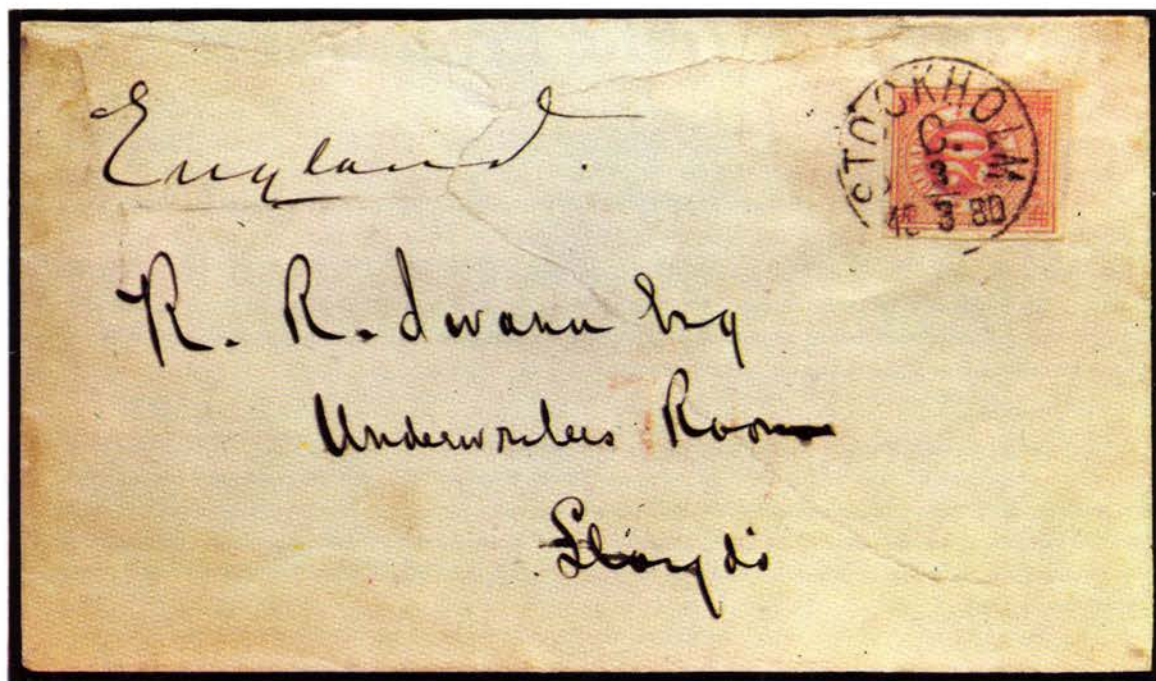 England.
STOCKHOLM
C.
20
3
3 80
R. R. Swann Esq
Underwriters Room
Lloyd's